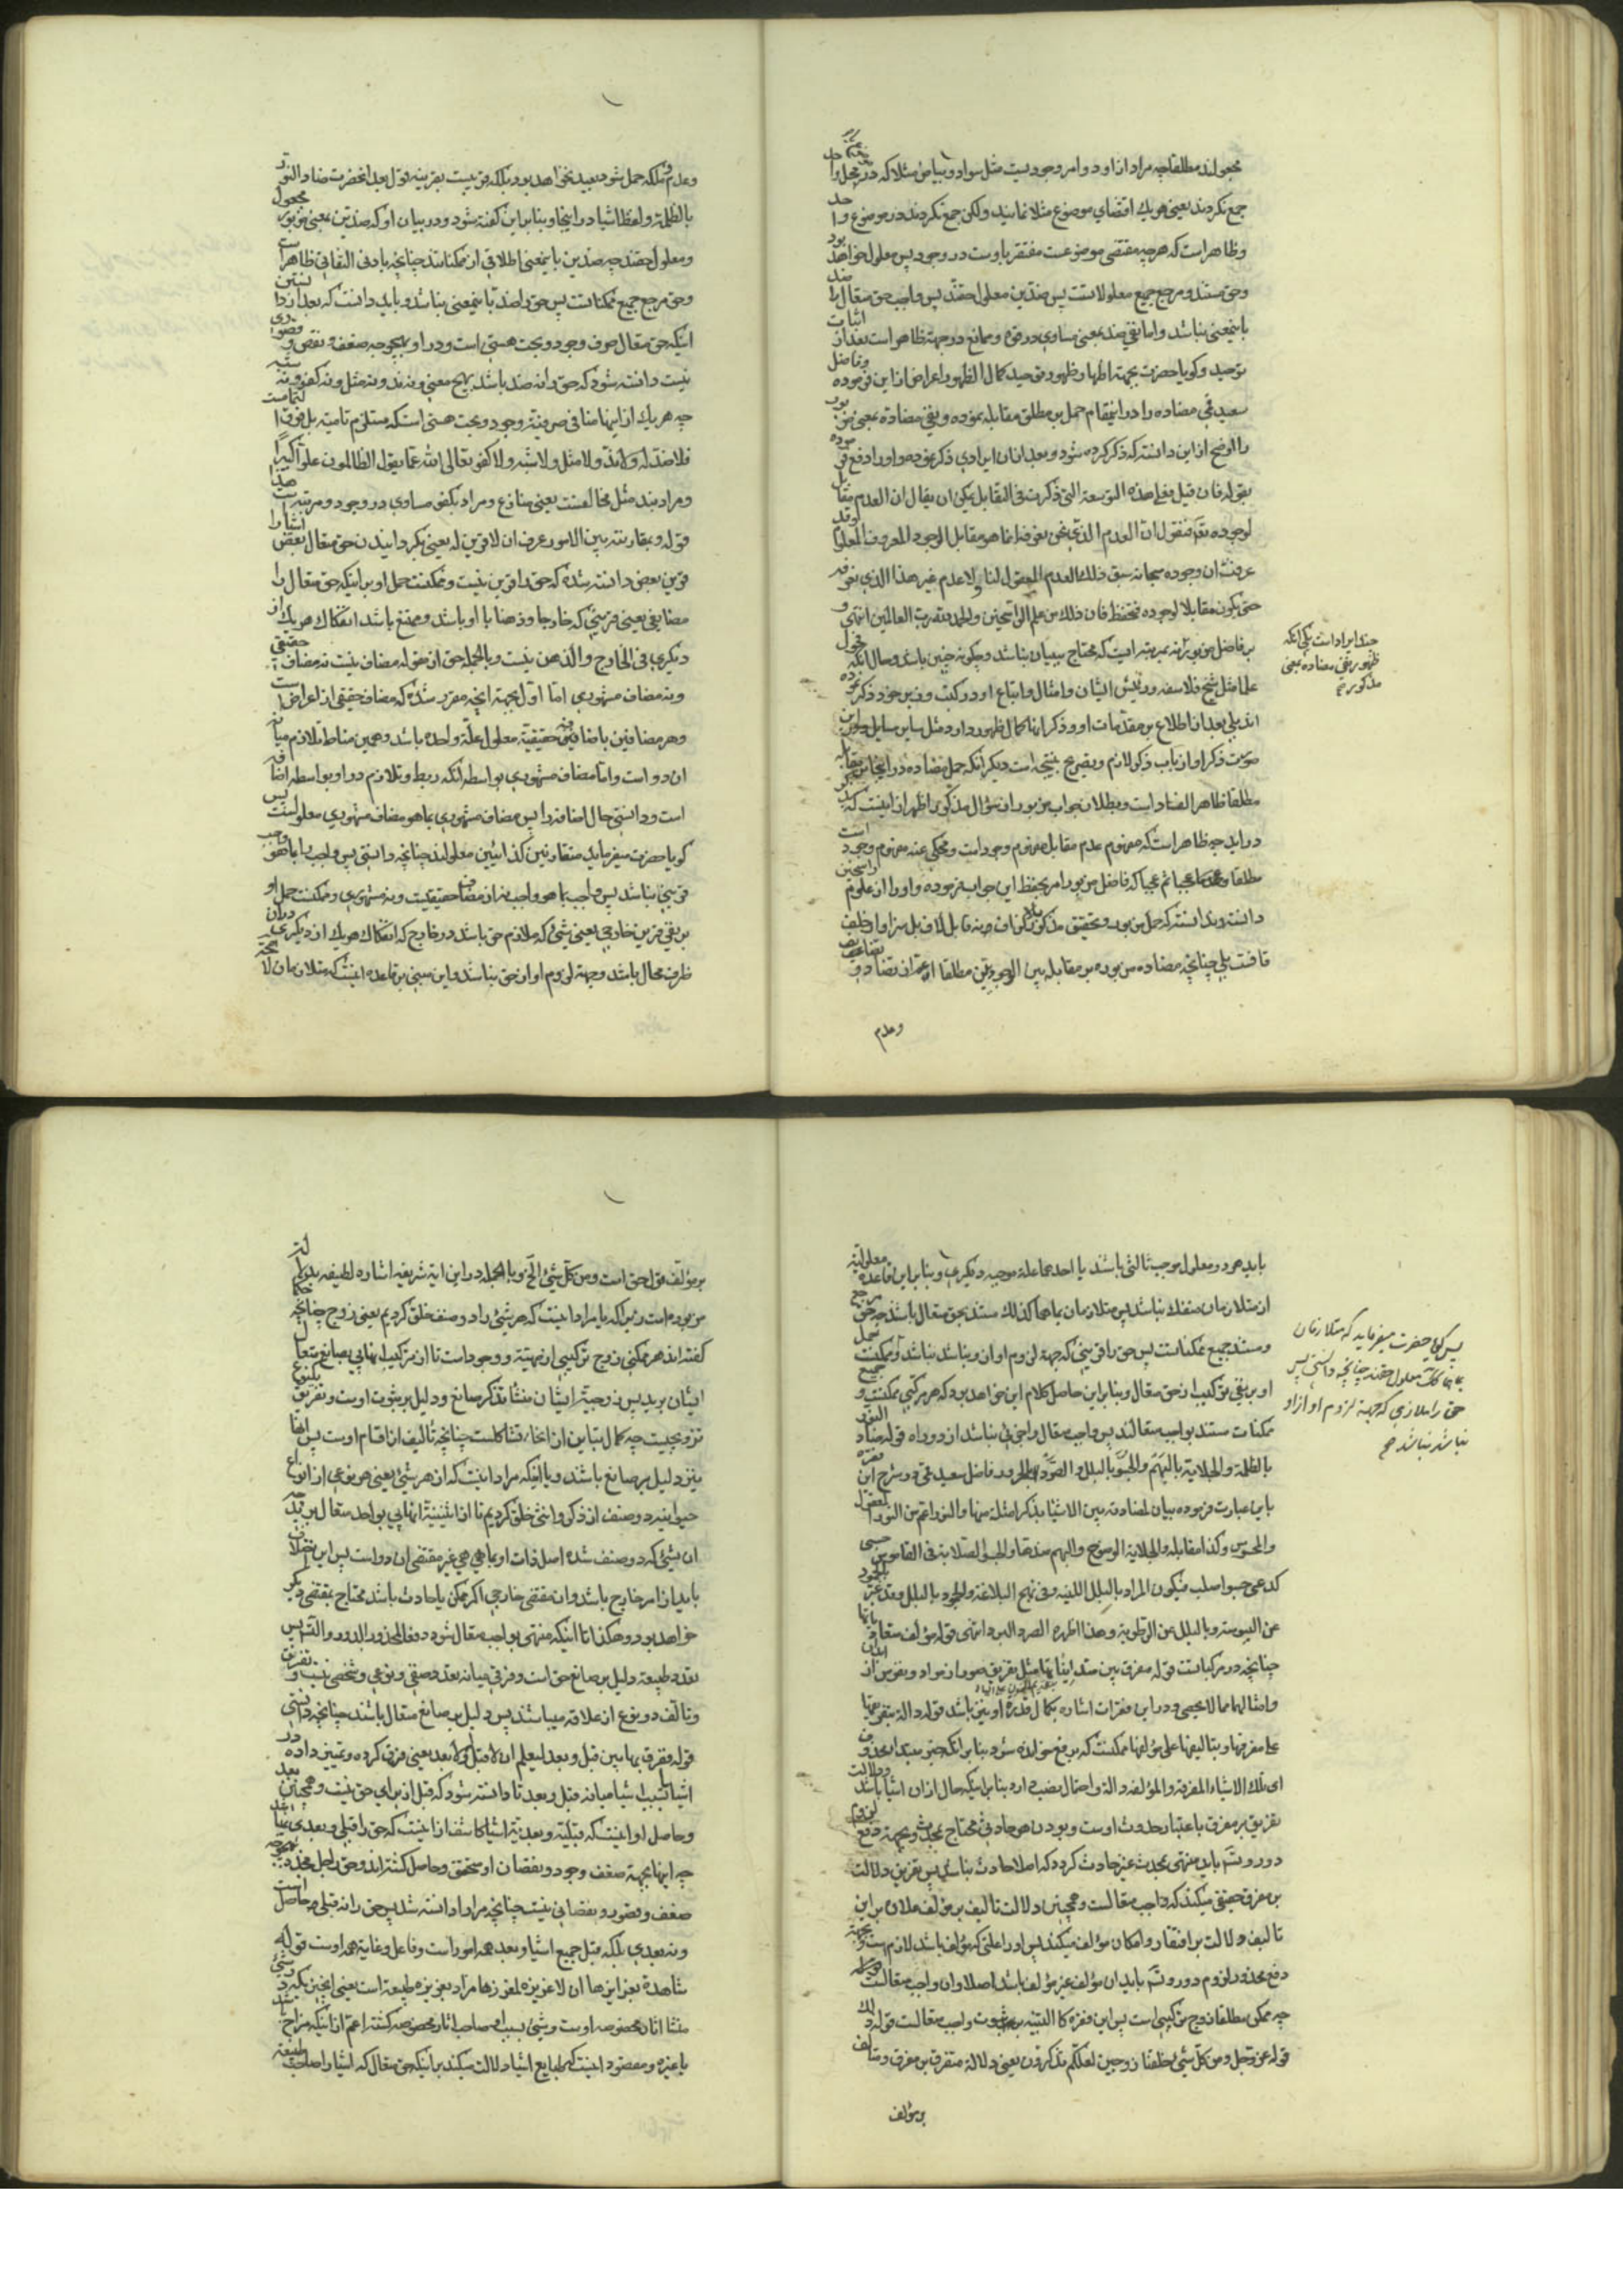 مجعولند مطلقا چه مراد از او دو امر وجودیست مثل سواد و بیاض مثلا که در محل واحد
جمع نکردند یعنی هر یک اقتضای موضوع مثلا نمایند ولکن جمع نکردند در موضوع واحد
وظاهر است که هر چه مقتضی موضوعست مفتقر باوست در وجود پس معلول خواهد بود
وحق مستند و مرجع جمیع معلولاتست پس ضدین معلول حقند پس واجب حق متعال را ضد
باینمعنی نباشد واما نفی ضد بمعنی مساوی در قوه وممانع در جهة ظاهر است بعد از اثبات
توحید وکویا حضرت بجهة اظهار وظهور توحید کمال الظهور اعراض از این فرموده وفاضل
سعید قمی مضاده را در اینمقام حمل بر مطلق مقابله نموده ونفی مضادة بمعنی مزبور
را اوضح از این دانسته که ذکر کرده شود وبعد از ان ایرادی ذکر نموده واو را دفع فرموده
بقوله فان قیل فعلی هذه التوسعة التی ذکرت فی التقابل یمکن ان یقال ان العدم مقابل
لوجوده تعالی فنقول ان العدم الذی نحن نعرفه انما هو مقابل الوجود المعروف المعلول وقد
عرفت ان وجوده سبحانه سبق ذلک العدم المعقول لنا ولا عدم غیر هذا الذی نعرفه
حتی یکون مقابلا لوجوده فتحفظ فان ذلک من علم الراسخین والحمد لله رب العالمین انتهی و
بر فاضل مزبور نه بمرتبه ایست که محتاج ببیان نباشد وچکونه چنین باشد وحال انکه فحول
علما مثل شیخ فلاسفه ورئیس ایشان وامثال واتباع او در کتب وفیر خود ذکر نموده
اند بلی بعد از اطلاع بر مقدمات او وذکر انها کمال ظهور دارد مثل سایر مسایل
صورت ذکر او از باب ذکر لازم وتصریح بنتیجه است دیکر انکه حمل مضاده در اینجا بر مقابله
مطلقا ظاهر الفساد است وبطلان جواب مزبور از سؤال مذکور اظهر از اینست که بتحریر
در اید چه ظاهر است که مفهوم عدم مقابل مفهوم وجود است ومحکی عنه مفهوم وجود است
مطلقا وعجبا ثم عجبا که فاضل مزبور امر بحفظ این جواب فرموده واو را از علوم راسخین
دانسته وندانسته که حمل مزبور وتحقیق مذکور
قافت بلی چنانچه مضاده مزبوره بر مقابله بین الوجودیین مطلقا اعم از تضاد و تضایف
وعدم
چند ایراد است یکی انکه
ظهور نفی مضاده بمعنی
مذکور
وعدم وملکه حمل شود بعید نخواهد بود بلکه قریبست بقرینه قول بعد انحضرت ضاد النور
بالظلمة ولفظ اشیا در اینجا وبنا بر این کفته شود در بیان او که ضدین بمعنی مزبور مجعول
ومعلول حقند چه ضدین باینمعنی اطلاقی از ممکناتند چنانچه بادنی التفاتی ظاهر است
وحق مرجع جمیع ممکناتست پس حق را ضد باینمعنی نباشد وباید دانست که بعد از دانستن
اینکه حق متعال صرف وجود وبحت هستی است ودر او بهیچوجه ضعف ونقص وقصوری
نیست دانسته شود که حق را نه ضد باشد بهیچ معنی ونه ند ونه مثل ونه کفو ونه شبیه
چه هر یک از اینها منافی صرفیة وجود وبحت هستی است که مستلزم تامیة بل فوق التمامست
فلا ضد له ولا ند ولا مثل ولا شبه ولا کفو تعالی الله عما یقول الظالمون علوا کبیرا
ومراد بند مثل مخالفست یعنی منازع ومراد بکفو مساوی در وجود ومرتبه است هذا
قوله وبمقارنته بین الامور عرف ان لا قرین له یعنی بکردانیدن حق متعال بعض اشیا را
قرین بعض دانسته شده که حق را قرین نیست وممکنست حمل او بر اینکه حق متعال را
مضایفی یعنی قرینی که خارجا وذهنا با او باشد وممتنع باشد انفکاک هر یک از
دیکری فی الخارج والذهن نیست وبالجمله حق ازحق له مضاف نیست نه مضاف حقیقی
ونه مضاف مشهوری اما اول بجهة انچه مقرر شده که مضاف حقیقی از اعراض است
وهر مضافین باضافین حقیقیة معلول علة واحده باشد وهمین مناط تلازم میانه
ان دو است واما مضاف مشهوری بواسطه انکه ربط وتلازم در او بواسطه اضافه
است ودانستی حال اضافه را پس مضاف مشهوری بما هو مضاف مشهوری معلولست پس
کویا حضرت میفرماید متقارنین کذائیین معلولند چنانچه دانستی پس واجب را بما هو واجب
قرینی نباشد پس واجب بما هو واجب نه از مضاف حقیقیست ونه مشهوری وممکنست حمل او
بر نفی قرین خارجی یعنی شیئی که ملازم حق باشد در خارج که انفکاک هر یک از دیکری در ان
ظرف محال باشد وجهة لزوم او از حق نباشد واین مبنی بر قاعده اینست که متلازمان لا محاله
باید هر دو معلول موجب ثالثی باشند یا احدهما علة موجبه دیکری وبنا بر این قاعده معلولیة
از متلازمان منفک نباشد پس متلازمان بما هما کذلک مستند بحق متعال باشند چه حق مرجع
ومستند جمیع ممکناتست پس حق را قرینی که جهة لزوم او از او نباشد نباشد وممکنست حمل
او بر نفی ترکیب از حق متعال وبنا بر این حاصل کلام این خواهد بود که هر مرکبی ممکنست وجمیع
ممکنات مستند بواجب متعالند پس واجب متعال را جزئی نباشد از دو راه قوله ضاد النور
بالظلمة والجلایة بالبهم والجسو بالبلل والصرد بالحرور فاضل سعید قمی در شرح این فقره
باین عبارت فرموده بیان لمضادته بین الاشیا بذکر امثلة منها والنور اعم من النور المعقول
والمحسوس وکذا مقابله والجلایة الوضوح والبهم ضدها والجسو الصلابة فی القاموس جسی
کدعی جسوا صلب فیکون المراد بالبلل اللینة وفی نهج البلاغة والجمود بالبلل وقد عبر بالجمود
عن الیبوسة وبالبلل عن الرطوبة وهذا اظهر الصرد البرد انتهی قوله مؤلف متعادیاتها
چنانچه در مرکباتست قوله مفرق بین متدانیاتها مثل تفریق صور از مواد ونفوس از ابدان
وامثالهما مما لا یحصی ودر این فقرات اشاره بکمال قدرة او نیز باشد قوله دالة بتفریقها
علی مفرقها وبتالیفها علی مؤلفها ممکنست که برفع خوانده شود بنا بر انکه خبر مبتدای محذوف
ای تلک الاشیاء المفرقة والمؤلفة دالة واحتمال نصب دارد بنا بر اینکه حال از ان اشیا باشد ودلالت
تفریق بر مفرق باعتبار حدوث اوست وبودن هر حادثی محتاج بمحدث وبجهة دفع لزوم
دور وتسلسل باید منتهی بمحدث غیر حادث کردد که اصلا حادث نباشد پس تفریق دلالت
بر مفرق حقیقی میکند که واجب متعالست وهمچنین دلالت تالیف بر مؤلف علاوه بر این
تالیف دلالت بر افتقار وامکان مؤلف میکند پس او را علتی که مؤلف باشد لازم است وبجهة
دفع محذور لزوم دور وتسلسل باید ان مؤلف غیر مؤلف باشد اصلا وان واجب متعالست
چه ممکن مطلقا زوج ترکیبی است پس این فقره کالنتیجه بر ثبوت واجب متعالست قوله ذلک
قوله عز وجل ومن کل شیئ خلقنا زوجین لعلکم تذکرون یعنی دلالة متفرق بر مفرق ومتالف
بر مؤلف
پس کویا حضرت میفرماید که متلازمان
بما هما کذلک معلول حقند چنانچه دانستی پس
حق را ملازمی که جهة لزوم او از او
نباشد نباشد صح
بر مؤلف قول حق است ومن کل شیئ الخ وبالجمله در این ایة شریفه اشاره لطیفه بدلالت
مزبوره است زیراکه یا مراد اینست که هر شیئ را دو صنف خلق کردیم یعنی زوج چنانچه حکما
کفته اند هر ممکنی زوج ترکیبی از مهیة ووجود است تا از ترکیب انها پی بصانع متعال
ایشان برید پس زوجیة ایشان منشا تذکر صانع ودلیل بر ثبوت اوست وتفریق
تزویجیست چه کمال تباین از انحاء تشاکلست چنانچه تالیف از اقسام اوست پس اینها
نیز دلیل بر صانع باشند ویا اینکه مراد اینست که از هر شیئ یعنی هر نوعی از انواع
حیوانیه دو صنف از ذکر وانثی خلق کردیم تا از اثنینیة انها پی بواحد متعال برید چه
ان شیئی که دو صنف شده اصل ذات او بما هی هی غیر مقتضی ان دو است پس این اختلاف
باید از امر خارج باشد وان مقتضی خارجی اکر ممکن یا حادث باشد محتاج بمقتضی دیکر
خواهد بود وهکذا تا اینکه منتهی بواجب متعال شود دفعا لمحذور الدور والتسلسل پس
تعدد طبیعة دلیل بر صانع حق است وفرقی میانه تعدد صنفی ونوعی وشخصی نیست وتفریق
وتالف دو نوع از علاقه میباشند پس دلیل بر صانع متعال باشند چنانچه دانستی
قوله ففرق بها بین قبل وبعد لیعلم ان لا قبل له ولا بعد یعنی فرق کرده وتمییز داده در
اشیا بسبب اشیا میانه قبل وبعد تا دانسته شود که قبل از برای حق نیست وهمچنین بعد
وحاصل او اینست که قبلیة وبعدیة اشیا کاشف از اینست که حق را قبلی وبعدی نباشد
چه اینها بجهة ضعف وجود ونقصان او متحقق وحاصل کشته اند وحق را بهیچوجه
ضعف وقصور ونقصانی نیست چنانچه مرارا دانسته شد پس حق را نه قبلی حاصل است
ونه بعدی بلکه قبل جمیع اشیا وبعد همه امور است وفاعل وغایة همه اوست قوله
شاهدة بغرایزها ان لا غریزة لمغرزها مراد بغریزه طبیعة است یعنی انچیزیکه در شیئ
منشا اثار مخصوصه اوست وشیئ بسبب او صاحب اثار مخصوصه کشته اعم از اینکه مزاج باشد
یا غیره ومقصود اینست که طبایع اشیا دلالت میکند بر اینکه حق متعال که اشیا را صاحب طبیعة